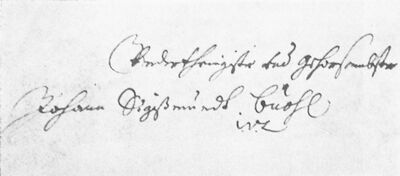 Underthenigste und gehorsambster
Johann Sigißmundt Buöhl